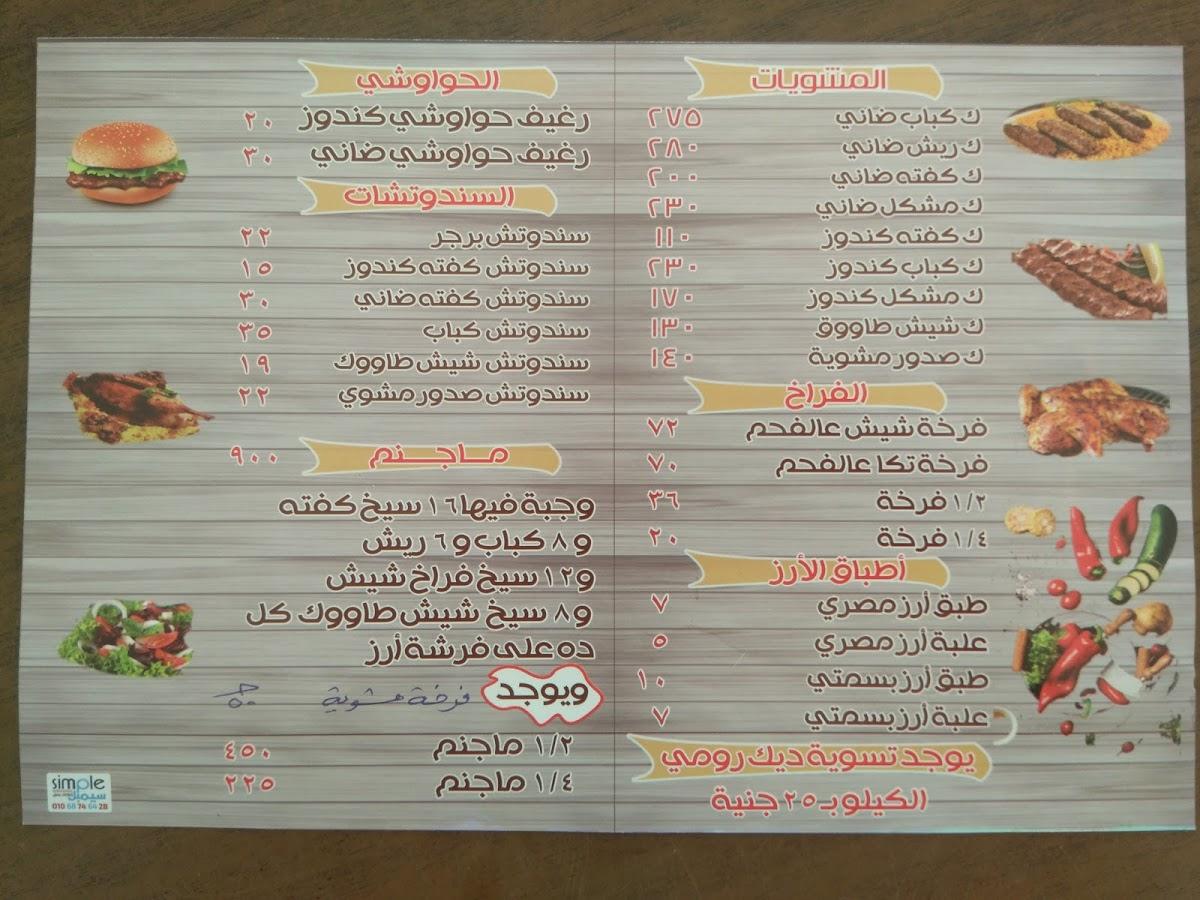 المشويات
ك كباب ضاني ٢٧٥
ك ريش ضاني ٢٨٠
ك كفته ضاني ٢٠٠
ك مشكل ضاني ٢٣٠
ك كفته كندوز ١١٠
ك كباب كندوز ٢٣٠
ك مشكل كندوز ١٧٠
ك شيش طاووق ١٣٠
ك صدور مشوية ١٤٠
الفراخ
فرخة شيش عالفحم ٧٢
فرخة تكا عالفحم ٧٠
١/٢ فرخة ٣٦
١/٤ فرخة ٢٠
أطباق الأرز
طبق أرز مصري ٧
علبة أرز مصري ٥
طبق أرز بسمتي ١٠
علبة أرز بسمتي ٧
يوجد تسوية ديك رومي
الكيلو بـ ٢٥ جنية
الحواوشي
رغيف حواوشي كندوز ٢٠
رغيف حواوشي ضاني ٣٠
السندوتشات
سندوتش برجر ٢٢
سندوتش كفته كندوز ١٥
سندوتش كفته ضاني ٣٠
سندوتش كباب ٣٥
سندوتش شيش طاووك ١٩
سندوتش صدور مشوي ٢٢
ماجنم ٩٠٠
وجبة فيها ١٦ سيخ كفته
و ٨ كباب و ٦ ريش
و ١٢ سيخ فراخ شيش
و ٨ سيخ شيش طاووك كل
ده على فرشة أرز
ويوجد فرخة مشوية
١/٢ ماجنم ٤٥٠
١/٤ ماجنم ٢٢٥
simple
سيمبل
010 68 74 64 28